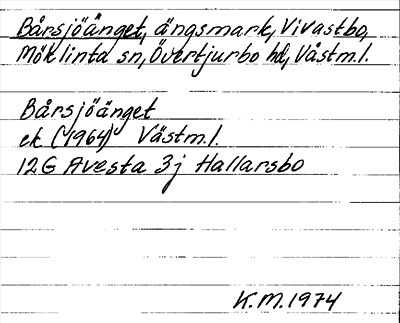 Bårsjöänget, ängsmark, Vivastbo,
Möklinta sn, Övertjurbo hd, Västm.l.
Bårsjöänget
ek (1964) Västm.l.
12G Avesta 3j Hallarsbo
K.M. 1974